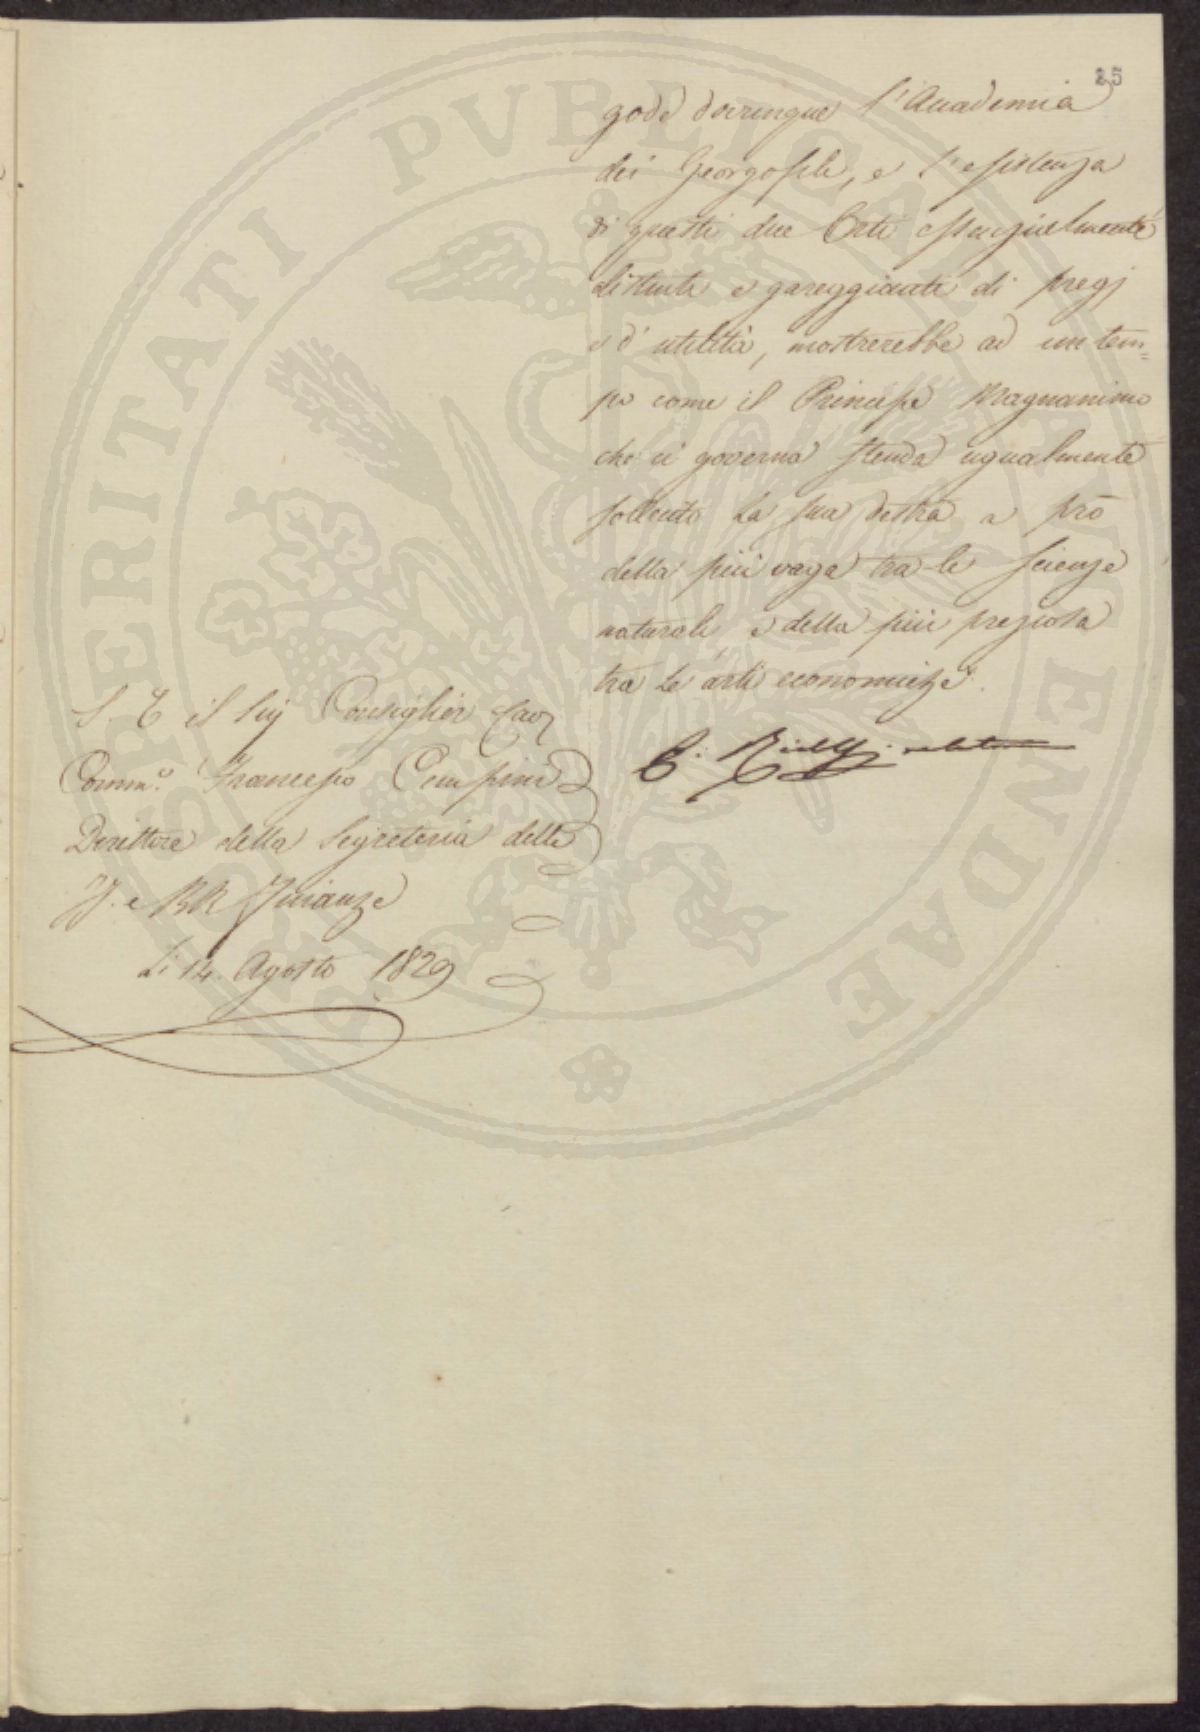 25
gode dovunque l'Accademia
dei Georgofili, e l'esistenza
di questi due Orti essenzialmente
distinti e gareggianti di pregj
e d'utilità, mostrerebbe ad un tem=
po come il Principe Magnanimo
che ci governa stenda ugualmente
sollecito la sua destra a prò
della più vaga tra le scienze
naturali, e della più preziosa
tra le arti economiche.
S. E. il Sig Consiglier Cav
Comm.e Francesco Cempini
Direttore della Segreteria delle
II. e RR Finanze
Li 14. Agosto 1829
PROSPERITATI PVBLICAE AVGENDAE